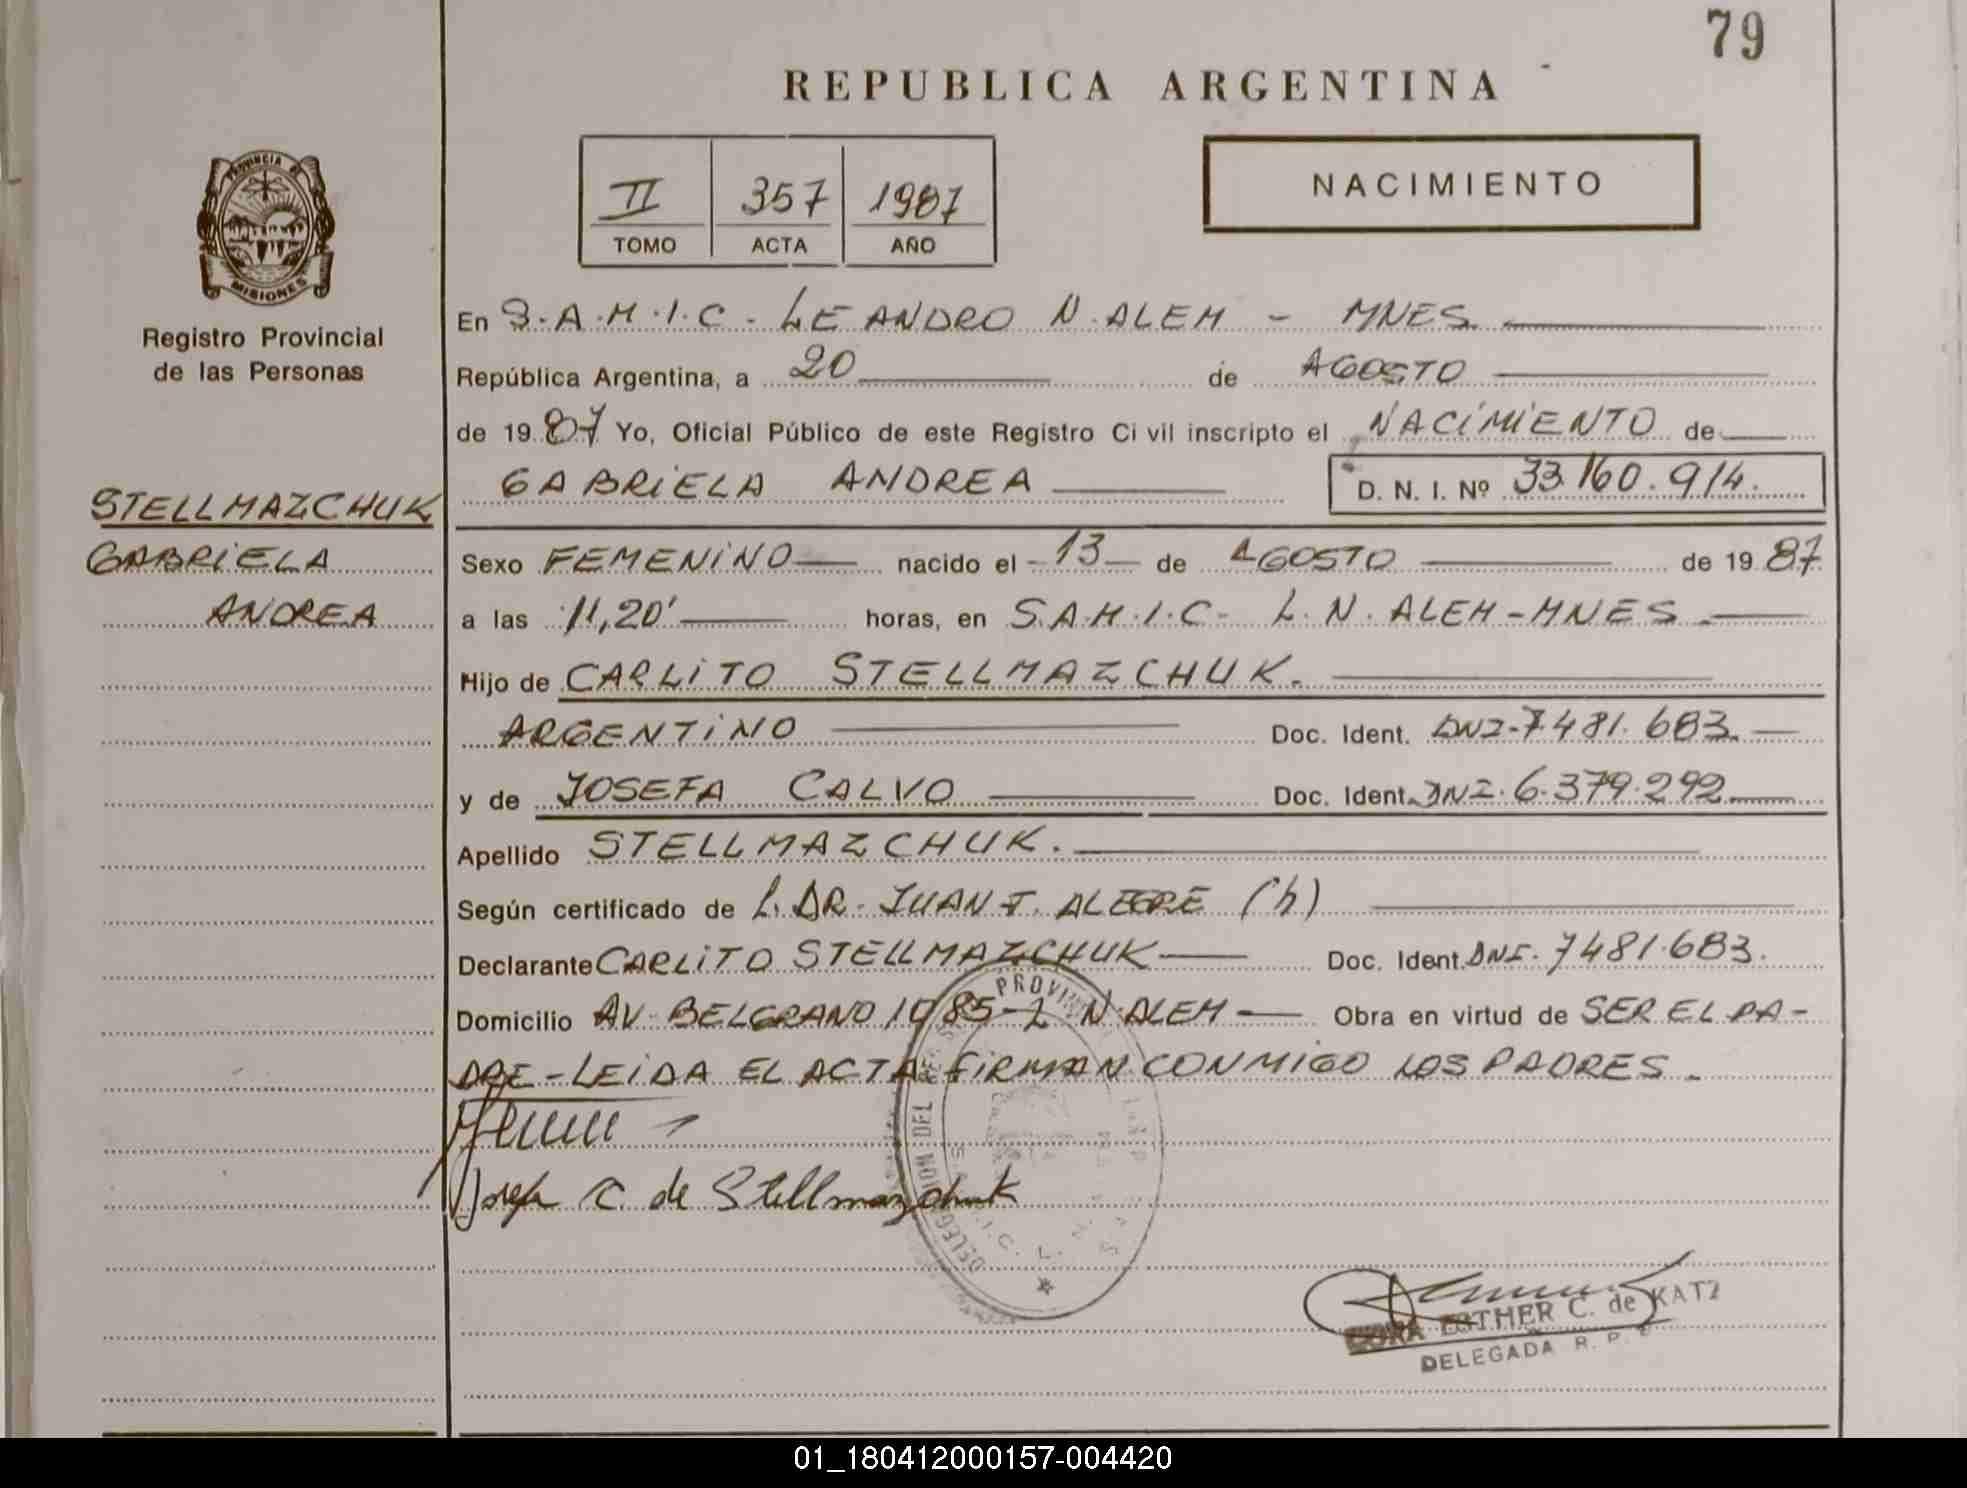 79
REPUBLICA ARGENTINA
PROVINCIA DE
MISIONES
Registro Provincial
de las Personas
II 357 1987
TOMO ACTA AÑO
NACIMIENTO
En S.A.M.I.C. LEANDRO N. ALEM - MNES
República Argentina, a 20 de AGOSTO
de 1987 Yo, Oficial Público de este Registro Ci vil inscripto el NACIMIENTO de
GABRIELA ANDREA D. N. I. Nº 33.160.914.
STELLMAZCHUK
GABRIELA
ANDREA
Sexo FEMENINO nacido el 13 de AGOSTO de 1987
a las 11,20' horas, en S.A.M.I.C- L.N. ALEM-MNES
Hijo de CARLITO STELLMAZCHUK.
ARGENTINO Doc. Ident. DNI-7.481.683.
y de JOSEFA CALVO Doc. Ident. DNI.6.379.292
Apellido STELLMAZCHUK.
Según certificado de L. DR. JUAN T. ALEGRE (h)
Declarante CARLITO STELLMAZCHUK Doc. Ident. DNI. 7481.683.
Domicilio AV. BELGRANO 1085-L N. ALEM Obra en virtud de SER EL PA-
DRE-LEIDA EL ACTA FIRMAN CONMIGO LOS PADRES.
Josefa C. de Stellmazchuk
DELEGACION DEL
ESTHER C. de KATZ
DELEGADA R. P.
01_180412000157-004420